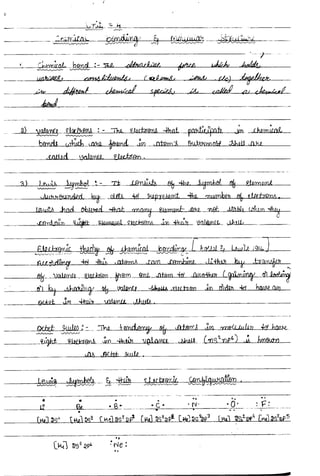 Unit 3.4
Chemical bonding & Molecular Structure
Chemical bond :- The attractive force which holds
various constituents (atoms, ions etc) together
in different chemical species is called a chemical
bond.
2) Valence Electrons :- The electrons that participate in chemical
bonds which are found in atom's outermost shell are
called valence electron.
3) Lewis Symbol :- It consists of the symbol of element
surrounded by dots to represent the number of electrons.
Lewis had observed that many element are not stable when they
contain eight electrons in their valence shell.
Electronic theory of chemical bonding [
According to this atoms can combine either by transfer
of valence electron from one atom to another (gaining or losing)
or by sharing of valence electron in order to have an
octet in their valence shell.
Octet Rule :- The tendency of atoms in molecules to have
eight electrons in their valance shell (ns²np⁶) is known
as octet rule.
Lewis Symbols & their electronic configuration.
Li Be B C N O F
[He] 2s¹ [He] 2s² [He] 2s² 2p¹ [He] 2s² 2p² [He] 2s² 2p³ [He] 2s² 2p⁴ [He] 2s² 2p⁵
[He] 2s² 2p⁶ :Ne: